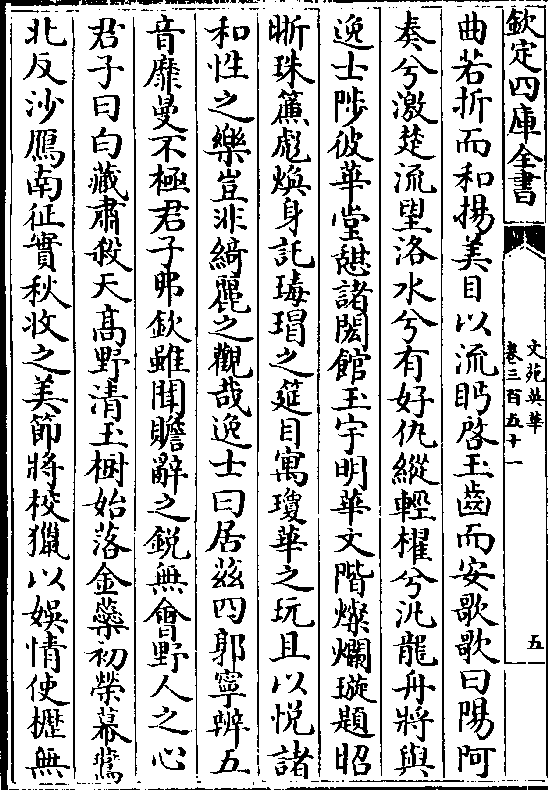 欽定四庫全書
文苑英華
卷三百五十一
五
曲若折而和揚美目以流眄啓玉齒而安歌歌曰陽阿
奏兮激楚流望洛水兮有好仇縱輕櫂兮汎龍舟將與
逸士陟彼華堂憇諸閎館玉宇明華文階燦爛璇題昭
晰珠簾彪煥身託瑇瑁之筵目寓瓊華之玩且以悦諸
和性之樂豈非綺麗之觀哉逸士曰居兹四郭寧辨五
音靡曼不極君子弗欽雖聞贍辭之鋭無會野人之心
君子曰白藏肅殺天髙野清玉樹始落金蘂初榮幕鷰
北反沙鴈南征實秋收之美節將校獵以娛情使櫪無